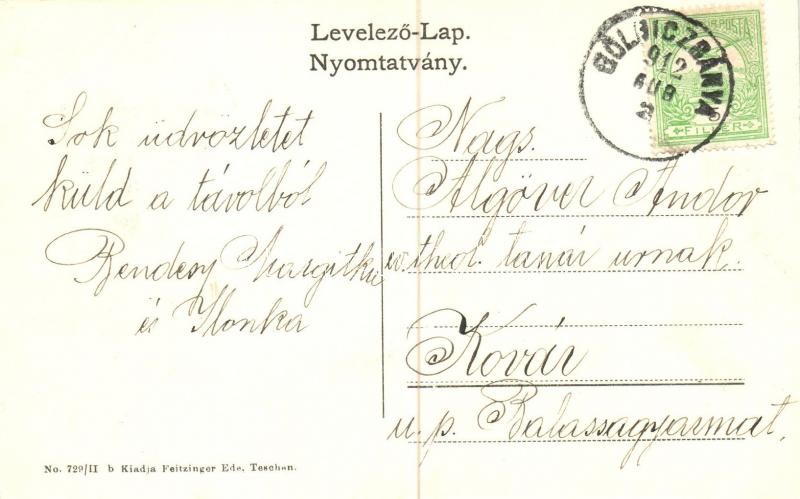 Levelező-Lap.
Nyomtatvány.
GÖLNICZBÁNYA
912
AUG
2
POSTA
FILLÉR
Sok üdvözletet
küld a távolból
Bendesy Margitka
és Ilonka
Nags.
Algöver Andor
theol. tanár urnak.
Kovár
u. p. Balassagyarmat.
No. 729/II b Kiadja Feitzinger Ede, Teschen.